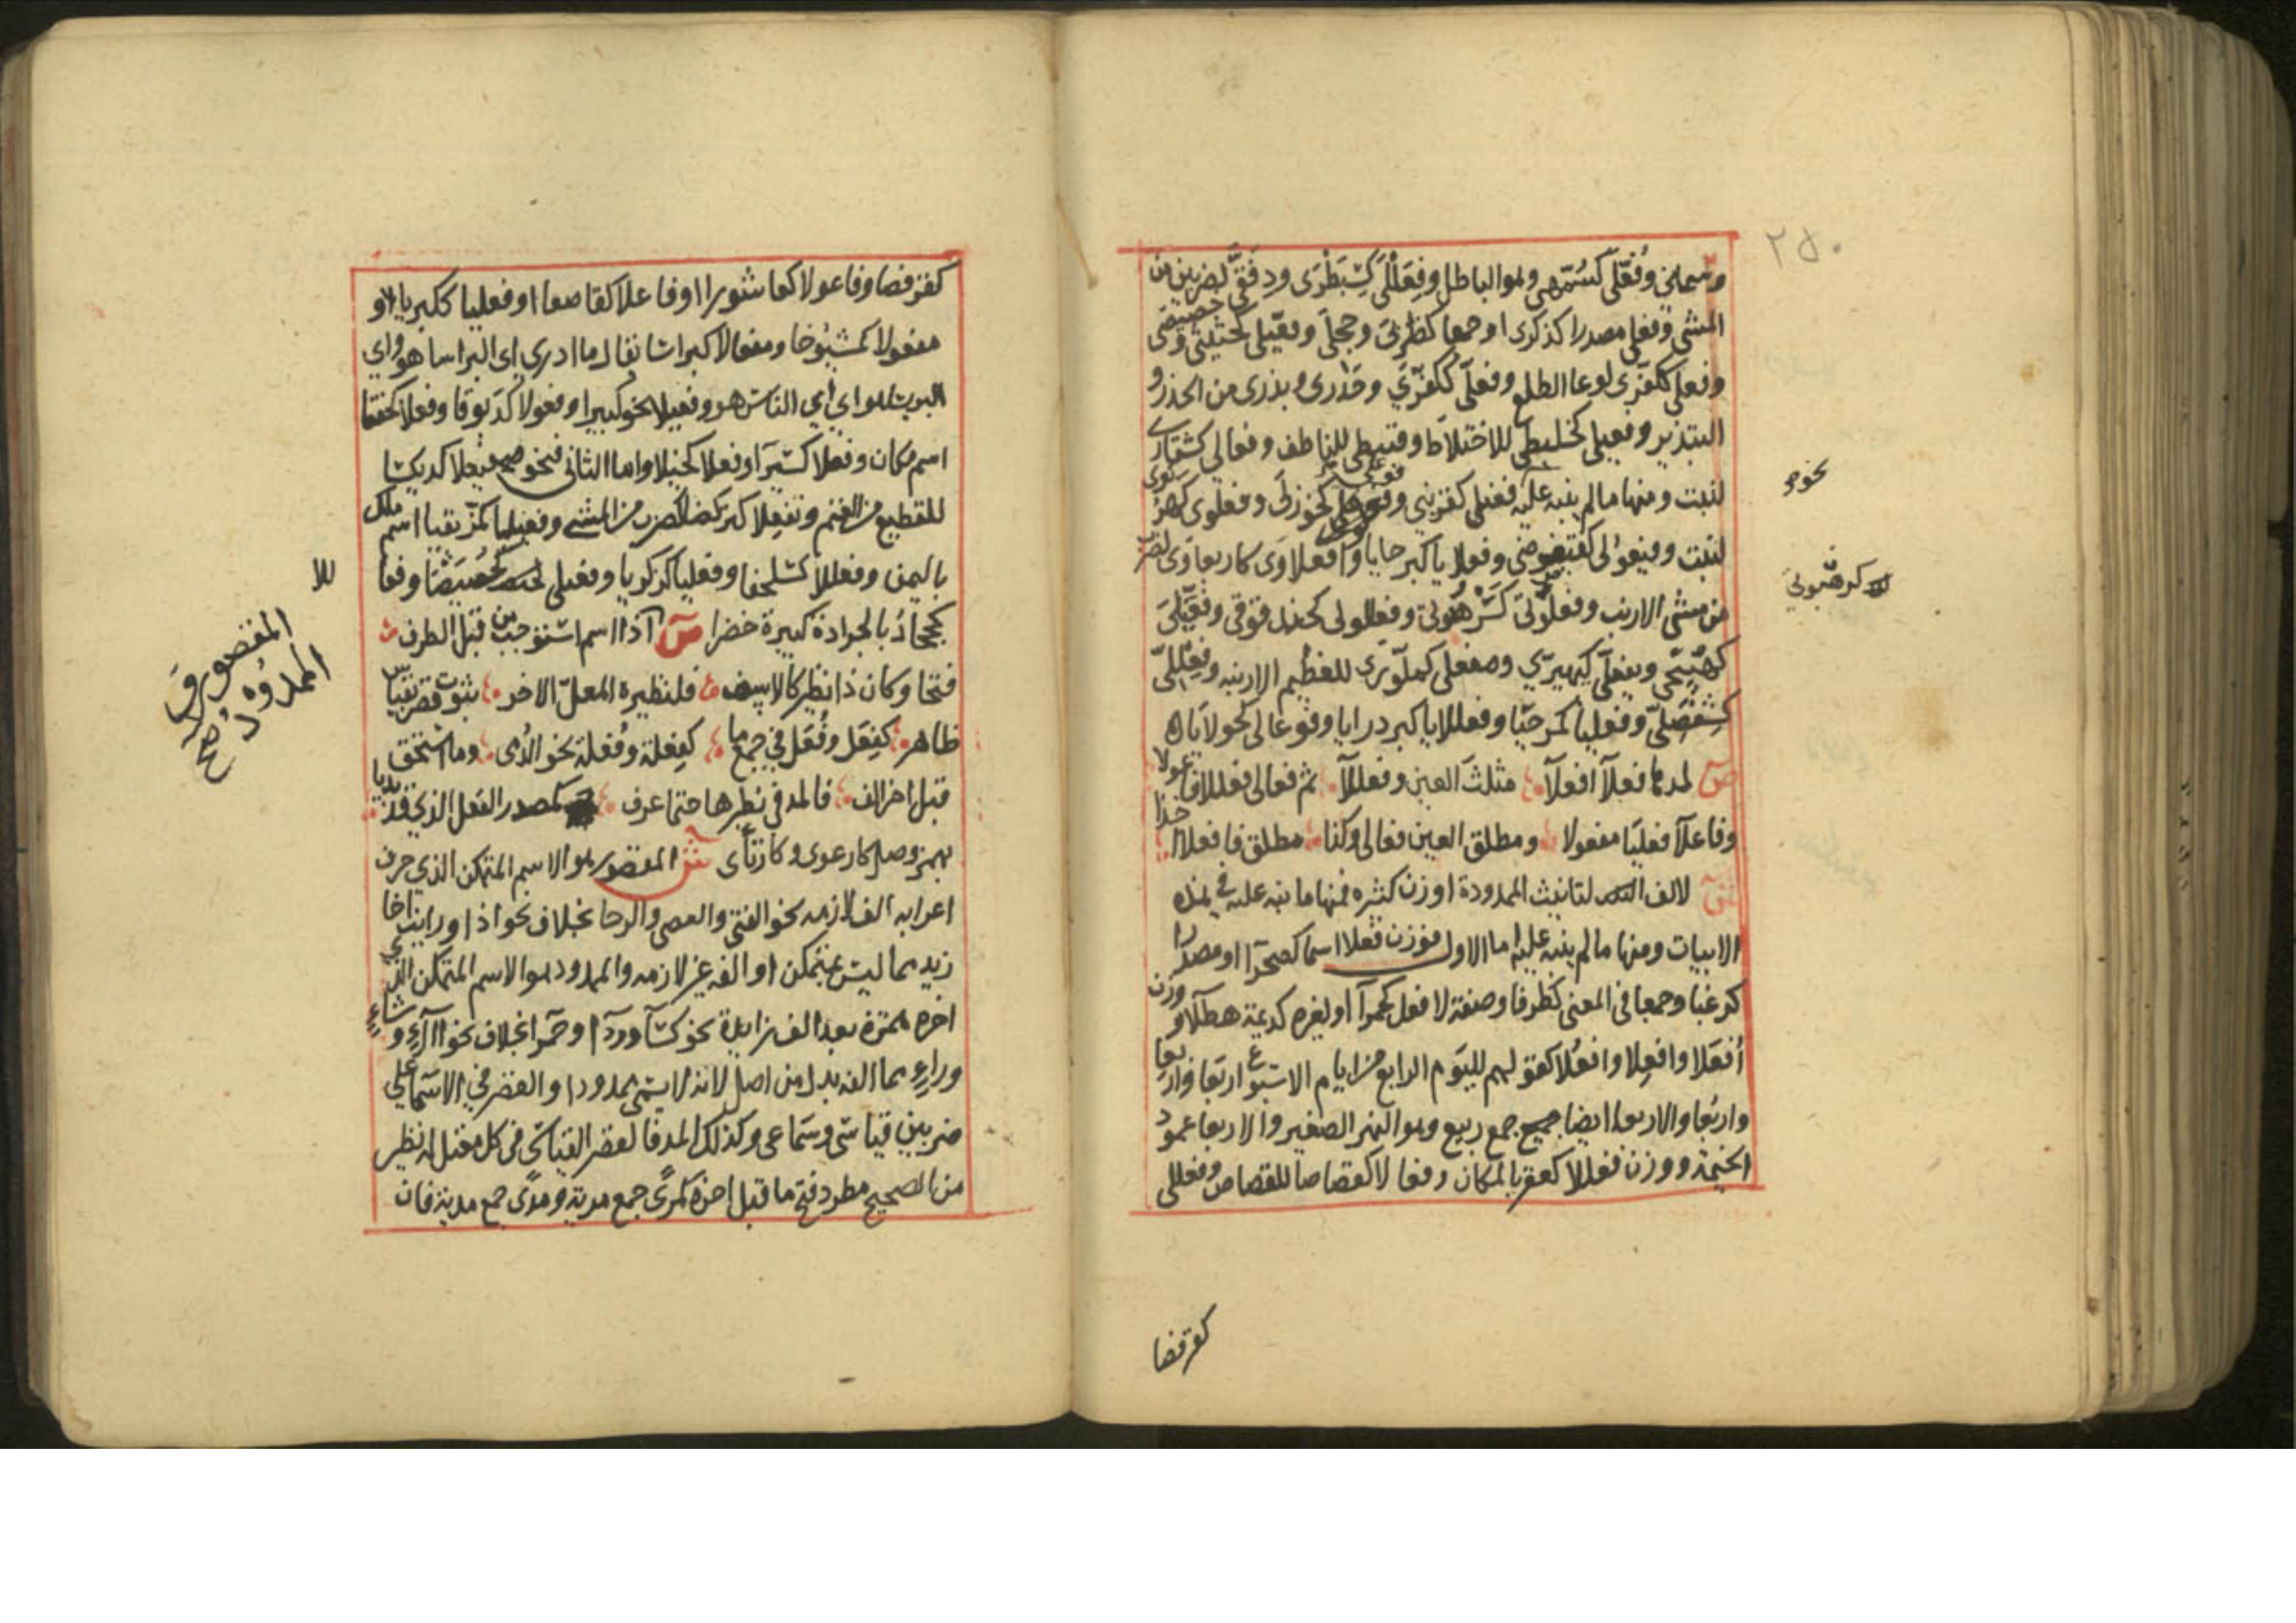 ٢٥٠
وسماني وفعّلى كسُمّهى وهو الباطل وفِعَلّى كسِبَطْرَى ودِفَقَّى لضربين من
المشى وفعلى مصدرا كذكرى او جمعا كظربى وحجلى وفعّيلى كحثيثى وخصيصى
وفعلى ككفرّى لوعا الطلع وفعلّى ككفرّي وحذرى وبذرى من الحذر و
التبذير وفعيلى كخليطى للاختلاط وقبيطى للناطف وفعالى كشقارى
لنبت ومنها ما لم ينبه عليه ففعلى كقرنبى وفوعلى كخوزلى وفعلوى كهرنوى
لنبت وفيعولى كفيضوضى وفعلايا كبرحايا وافعلاوى كاربعاوى لضرب
من مشى الارنب وفعلوتى كرهبوتى وفعللولى كحندقوقى وفعيّلى
كهبيّخى ويفعلّى كيهيرّي ومفعلى كملوّرى للعظيم الارنبه وفعللّى
كشفصلّى وفعليا كمرحيا وفعللايا كبردرايا وفوعالى كحولايا ه
ص لمدها فعلآ افعلآ مثلث العين وفعللآ ثم فعالى فعللا فاعولا
وفاعلآ فعليا مفعولا ومطلق العين فعالى وكذا مطلق فا فعلاا خذا
ش لالف التانيث الممدودة اوزن كثيره فمنها ما نبه عليه في هذه
الابيات ومنها ما لم ينبه عليه اما الاول فوزن فعلاا اسما كصحرآ او مصدرا
كرغبا وجمعا فى المعنى كطرفا وصفة لا فعل كحمرآ او لغيره كديمة هطلآ ووزن
أفعَلا وافعِلا وافعُلا كقولهم لليوم الرابع من ايام الاسبوع اربَعا واربِعا
واربُعا والاربعاا ايضا جمع ربيع وهو النهر الصغير والاربعا عمود
الخيمة ووزن فعللا كعقربا لمكان وفعا لا كقصاصا للقصاص وفعللى
نحو
كرهبوتى
كقرفصا
كقرفصا وفاعولا كعاشورا او فاعلا كقاصعاا وفعليا ككبرياا او
مفعولا كمشيوخا وفعالا كبراسا يقال ما ادرى اى البراسا هو اي
البرنسا هو اي اي الناس هو وفعيلا نحو كبيرا وفعولا كدبوقا وفعلا كحفقا
اسم مكان وفعلا كسيرآ وفعلا كخيلا واما الثانى فنحو فيعلا كديكسا
للقطيع من الغنم وتفعلا كتركضا لضرب من المشى وفعيليا كمزيقيا اسم ملك
باليمن وفعللا كسلحفا وفعليا كزكريا وفعيلى كخصيصا وفعا
كجحادبا لجرادة كبيرة خضرا ص آذا اسم استوجب من قبل الطرف
فتحا وكان ذا نظير كالاسف فلنظيره المعلّ الاخر ثبوت قصر بقياس
ظاهر كفِعَل وفُعَل في جمع ما كفِعلة وفُعلة نحو الدُمى وما استحق
قبل اخر الف فالمد فى نظيرها حتما عرف كمصدر الفعل الذي قد بديا
بهمز وصل كارعوى وكارتأى ش المقصور هو الاسم المتمكن الذي حرف
اعرابه الف لازمه نحو الفتى والعصى والرحا بخلاف نحو اذا ورايت اخا
زيد مما ليس بمتمكن او الفه غير لازمه والممدود هو الاسم المتمكن الذي
اخره همزة بعد الف زايدة نحو كسآ وردآ وحمرا بخلاف نحو اآء وشاء
وراء مما الفه بدل من اصل لانه لا يسمى ممدودا والقصر في الاسما على
ضربين قياسى وسماعى وكذلك المد فا لقصر القياسى فى كل معتل له نظير
من الصحيح مطرد فتح ما قبل اخره كمِرًى جمع مرية ومدى جمع مدية فان
المقصور و
الممدود
صح